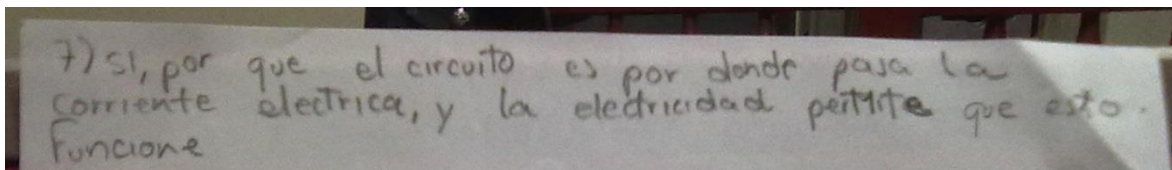 7) SI, por que el circuito es por donde pasa la
corriente electrica, y la electricidad permite que esto.
Funcione